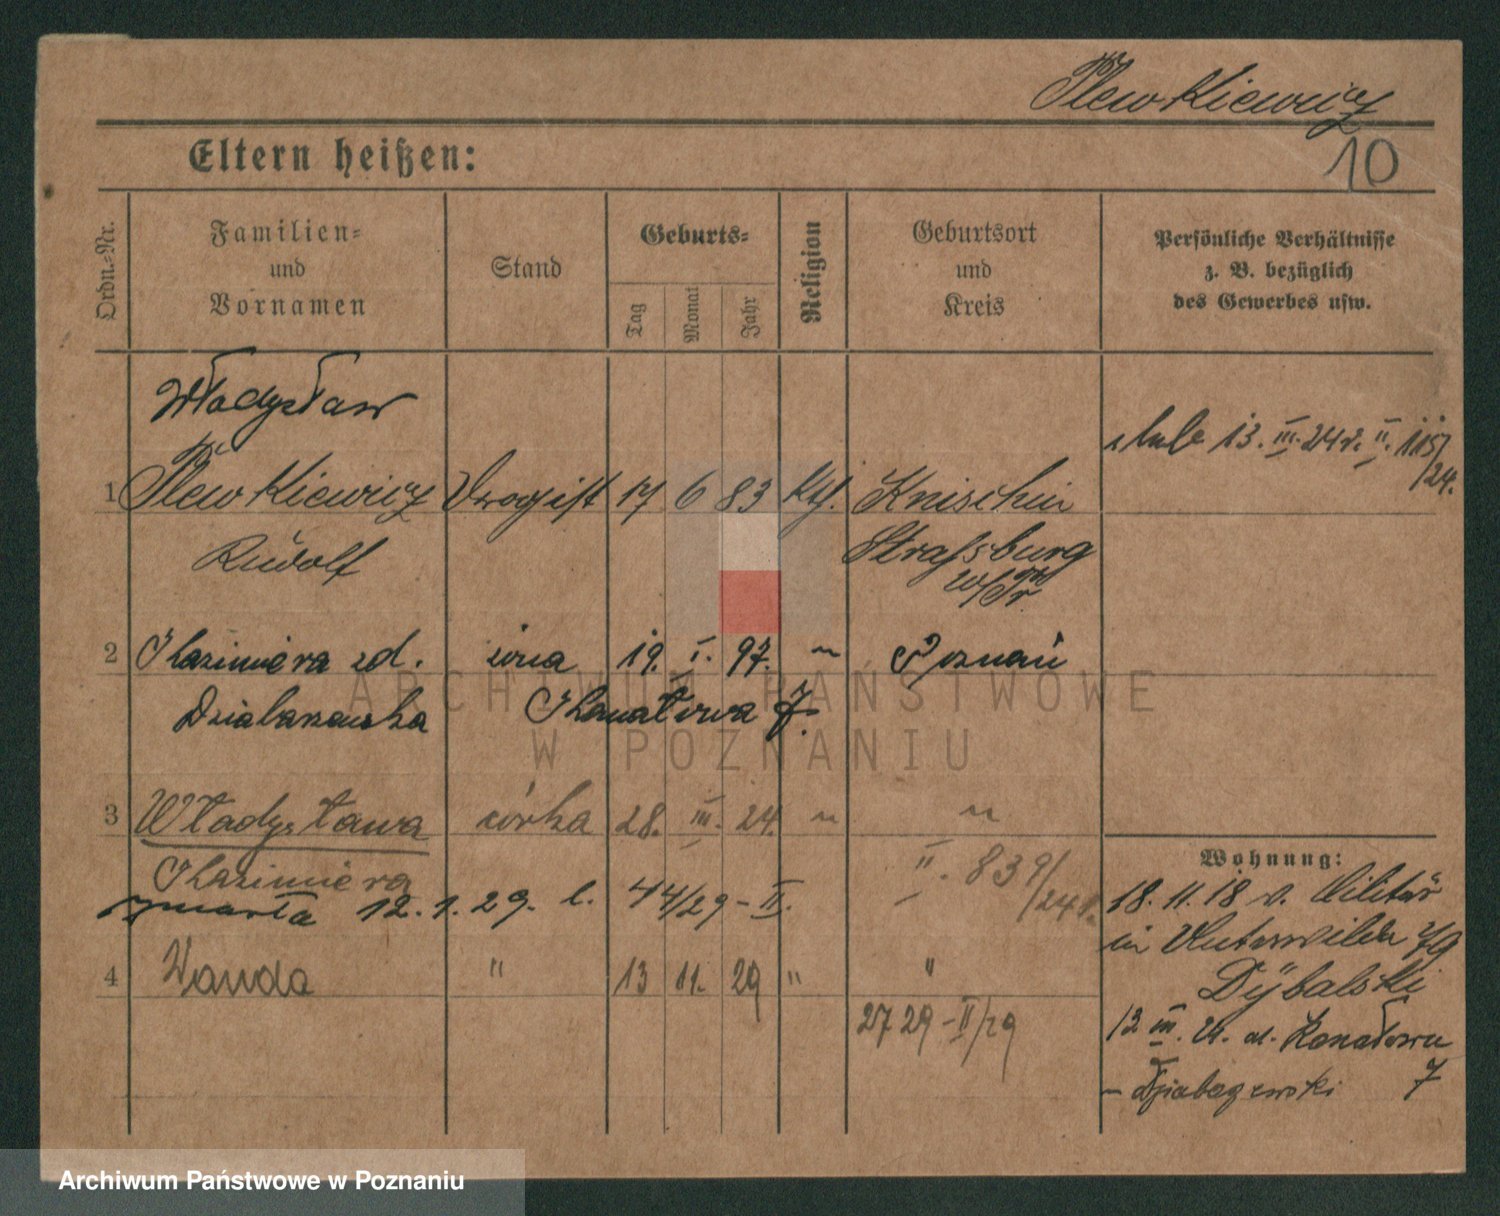 Plewkiewicz
10
Eltern heißen:
Ordn.-Nr.
Familien-
und
Vornamen
Stand
Geburts-
Tag
Monat
Jahr
Religion
Geburtsort
und
Kreis
Persönliche Verhältnisse
z. B. bezüglich
des Gewerbes usw.
Władysław
13. III. 24 r. II. 115/
/24.
1 Plewkiewicz Drogist 17 6 83 kth. Knischin
Rudolf Strassburg
W/Pr
2 Kazimiera zd. żona 19. I. 97. " Poznań
Działaszewska Konatowa 7.
3 Władysława córka 28. III. 24. " "
Kazimiera II. 839/
/24
zmarła 12.1.29. l. 44/29-II.
4 Wanda " 13 11. 29 " "
2729-II/29
Wohnung:
18.11.18 v. Militär
in Unterwilda 79
Dybalski
13 III. 24. Konatowa
7
ARCHIWUM PAŃSTWOWE
W POZNANIU
Archiwum Państwowe w Poznaniu